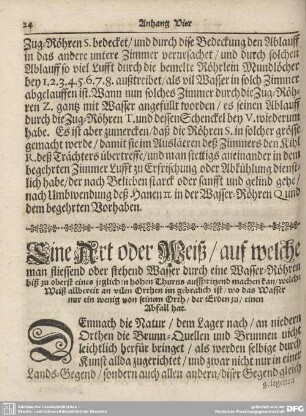 24 Anhang Vier
Zug-Röhren S. bedecket/ und durch dise Bedeckung den Ablauff
in das andere untere Zimmer verursachet / und durch solchen
Ablauff so viel Lufft durch die bemelte Röhrlein Mundlöcher
bey 1.2.3.4.5.6.7.8. außtreibet/ als vil Wasser in solch Zimmer
abgelauffen ist. Wann nun solches Zimmer durch die Zug-Röh-
ren Z. gantz mit Wasser angefüllt worden / es seinen Ablauff
durch die Zug-Röhren T. und dessen Schenckel bey V. wiederum
habe. Es ist aber zumercken/ daß die Röhren S. in solcher grösse
gemacht werde / damit sie im Ausläeren deß Zimmers den Kihl
R. deß Trächters übertreffe/ und man stettigs aneinander in dem
begehrten Zimmer Lufft zu Erfrischung oder Abkühlung dienst-
lich habe/ der nach Belieben starck oder sanfft und gelind gehe/
nach Umbwendung deß Hanen π in der Wasser-Röhren Q und
dem begehrten Vorhaben.
Eine Art oder Weiß/ auf welche
man fliessend oder stehend Wasser durch eine Wasser-Röhren
biß zu oberst eines jeglich in hohen Thurns aufspringend machen kan/ welche
Weiß allbereit an vilen Orthen im gebrauch ist / wo das Wasser
nur ein wenig von seinem Orth/ der Erden zu/ einen
Abfall hat.
DEmnath die Natur / dem Lager nach / an niedern
Orthen die Brunn-Quellen und Brunnen nicht
leichtlich herfür bringet / als werden selbige durch
Kunst allda zugerichtet/ und zwar nicht nur in einer
Lands-Gegend / sondern auch allen andern/ diser Gegend gleich
gelegenen